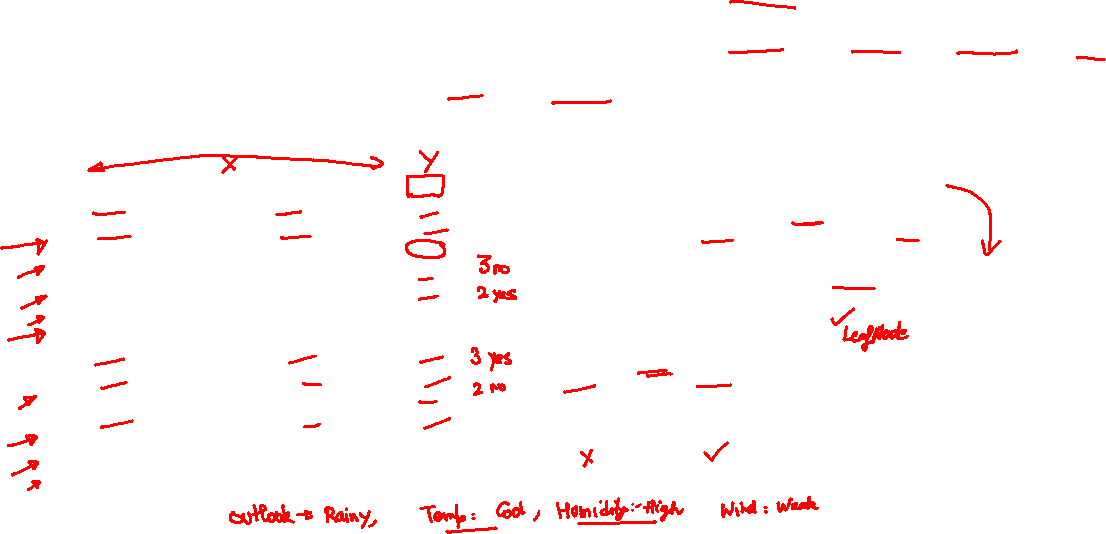 X
Y
3 no
2 yes
Leaf Node
3 yes
2 no
X
outlook → Rainy, Temp: Cool, Humidity:- High Wind: Weak